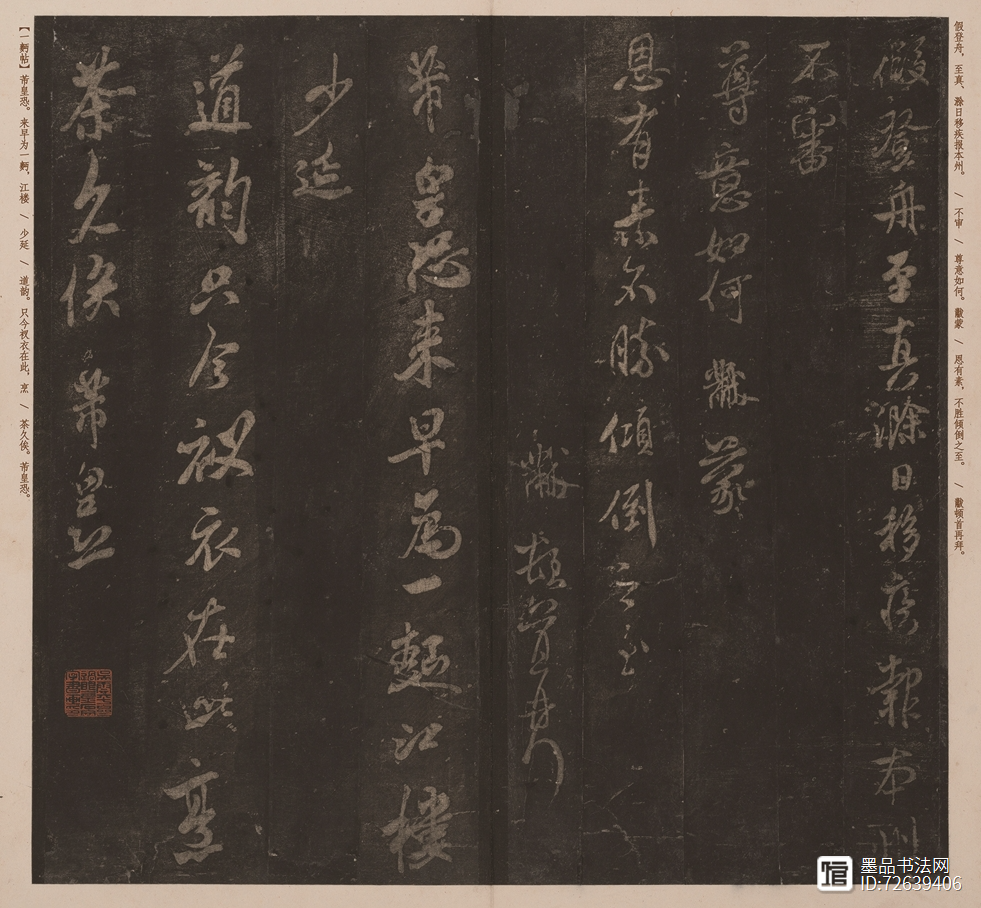 假登舟、至真、滁日移疾报本州。 \ 不审 \ 尊意如何。黻蒙 \ 恩有素,不胜倾倒之至。 \ 黻顿首再拜。
假登舟至真滁日移疾報本州
不審
尊意如何黻蒙
恩有素不勝傾倒之至
黻頓首再拜
芾皇恐来早為一麪江樓
少延
道韵只今衩衣在此烹
茶久俟芾皇恐
【一麪帖】芾皇恐。来早为一麪,江楼 \ 少延 \ 道韵。只今衩衣在此,烹 \ 茶久俟。芾皇恐。
墨品书法网
ID:72639406